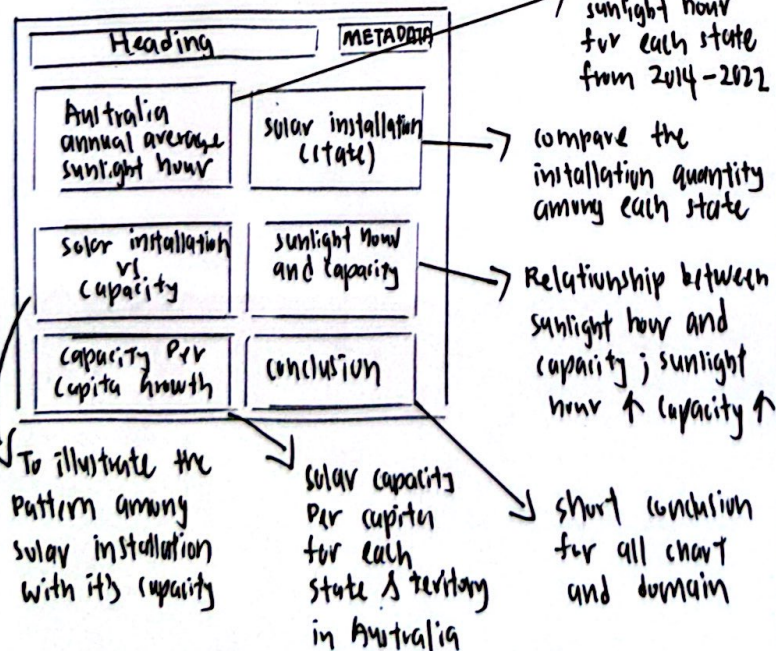 Heading
METADATA
Australia
annual average
sunlight hour
solar installation
(state)
solar installation
vs
capacity
sunlight hour
and capacity
capacity Per
capita Growth
conclusion
sunlight hour
for each state
from 2014-2022
compare the
installation quantity
among each state
Relationship between
sunlight hour and
capacity ; sunlight
hour ↑ capacity ↑
To illustrate the
pattern among
solar installation
with it's capacity
solar capacity
Per capita
for each
state & teritory
in Australia
short conclusion
for all chart
and domain